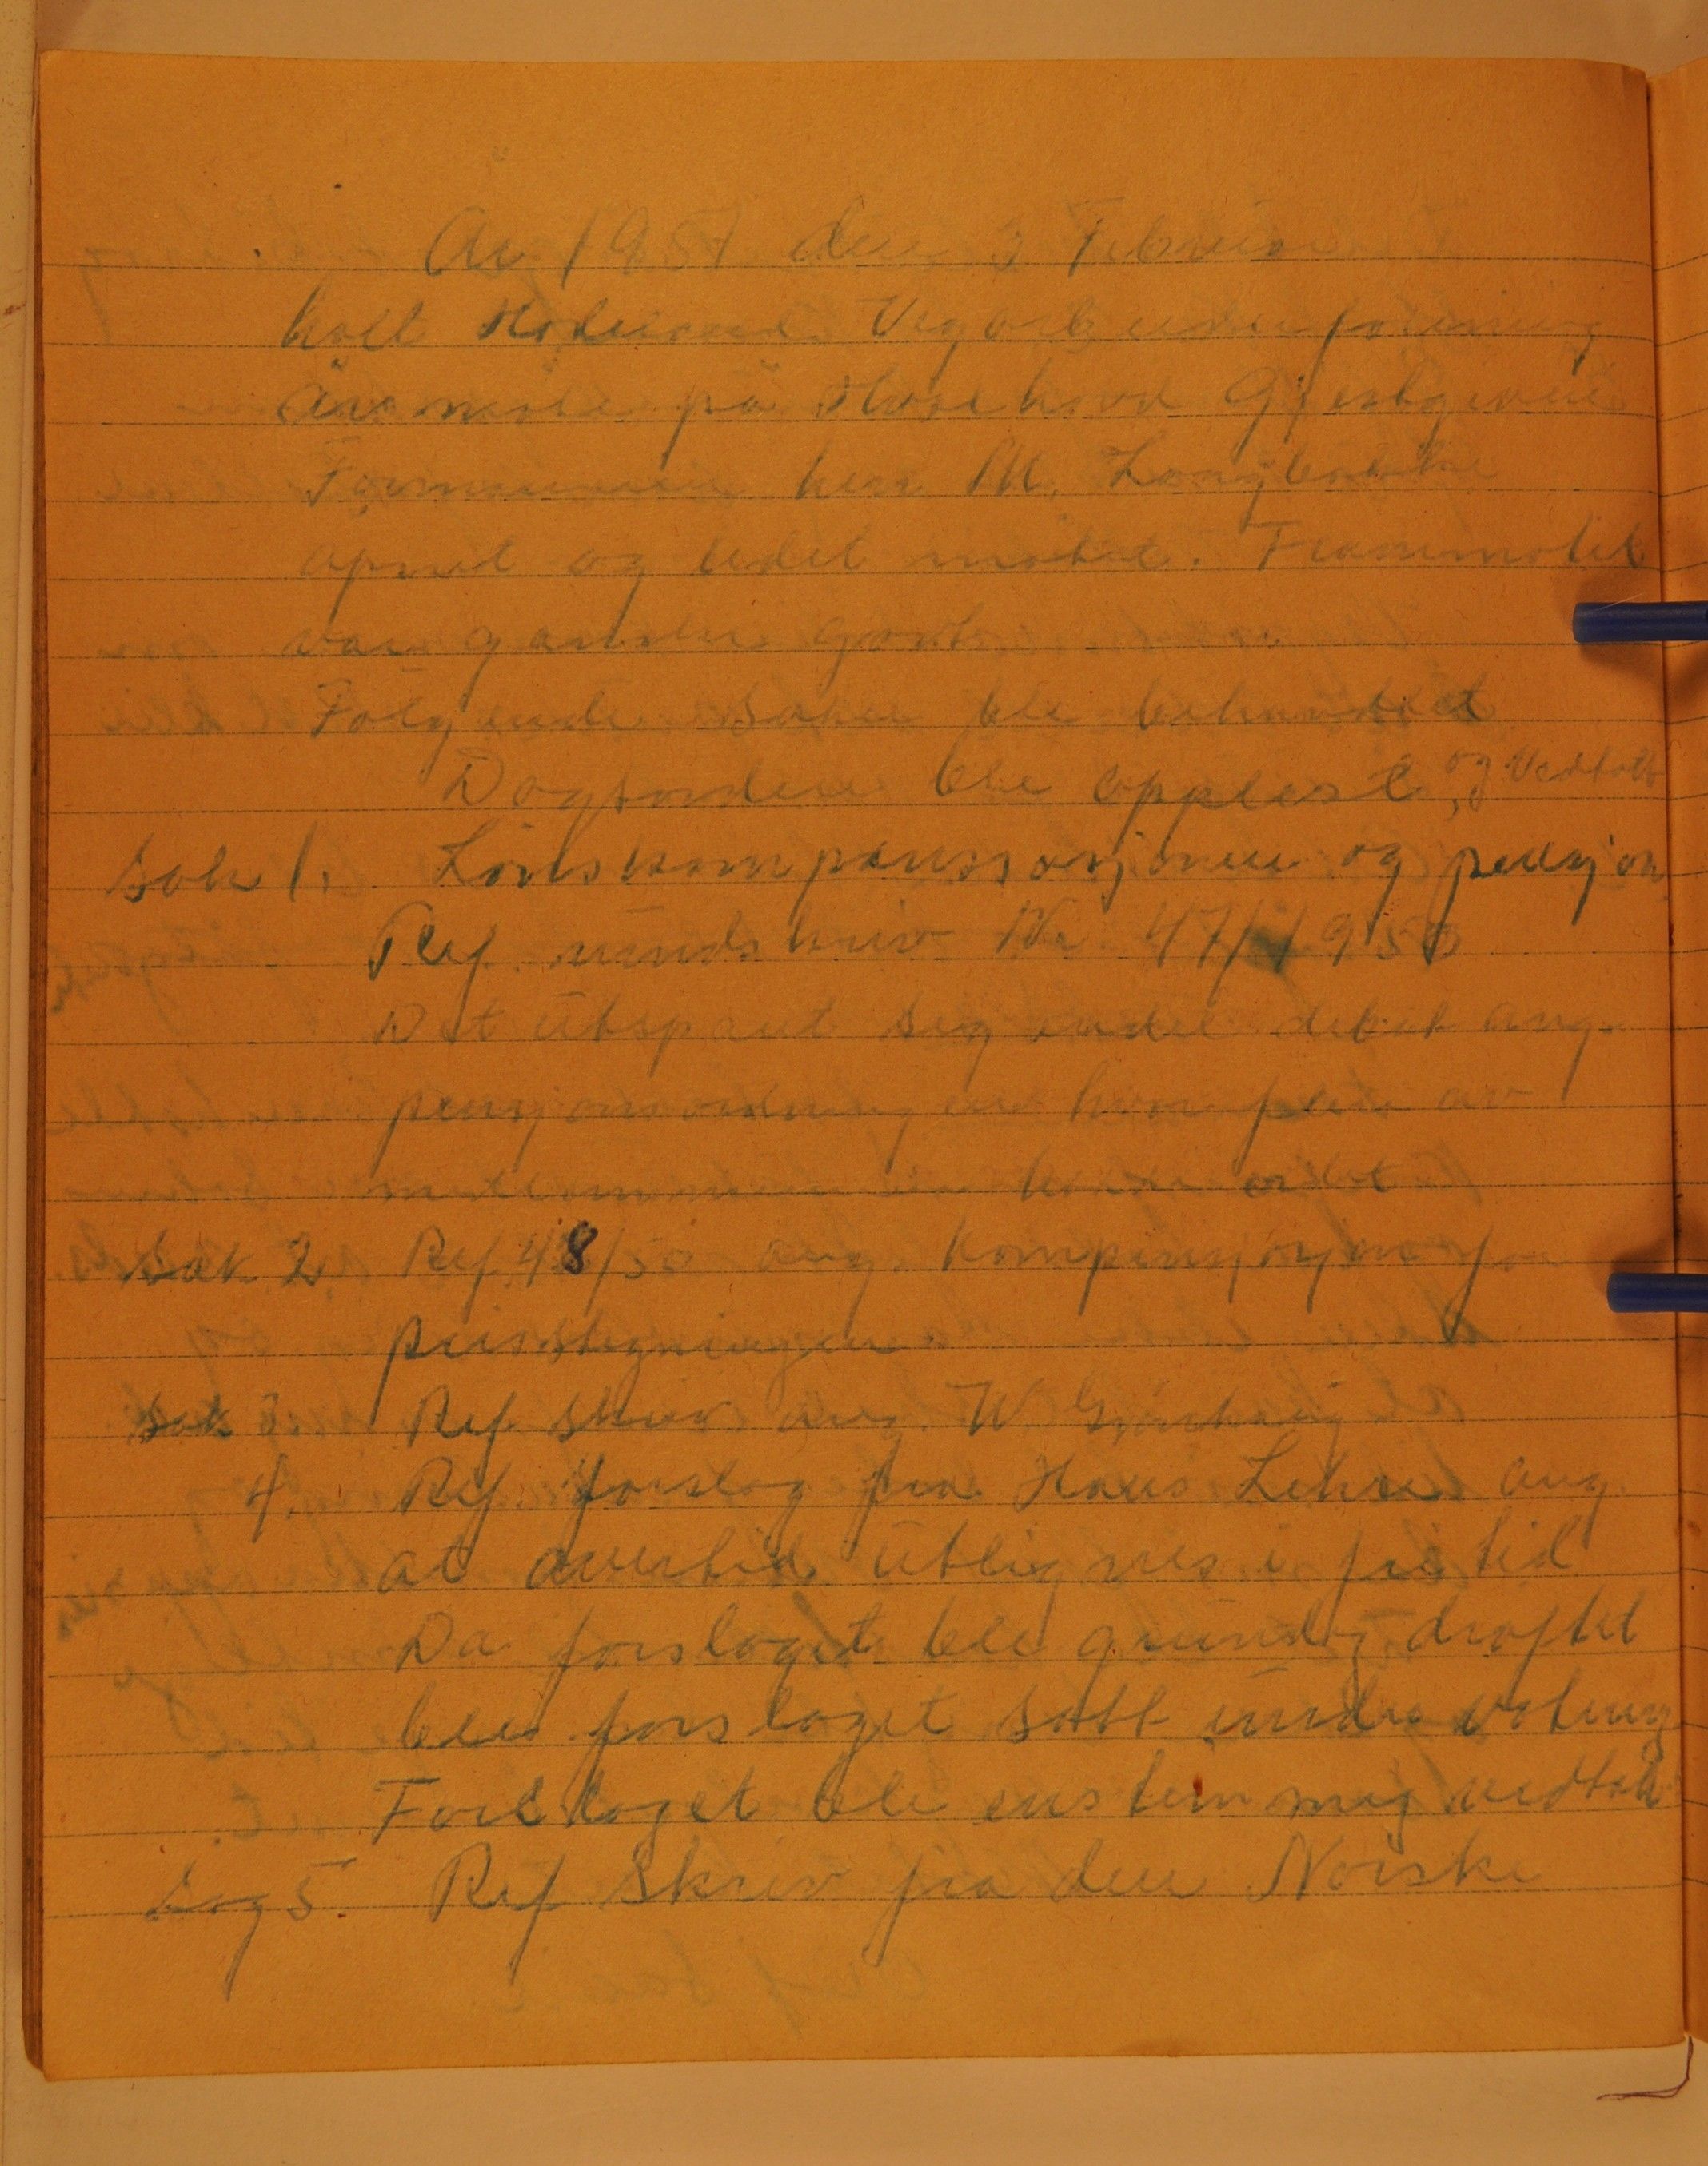 År 1951 den 3 Februar
holt Vegarbeiderforening
årsmøte på Gjestgiveri
Formannen herr M. Langbakke
åpnet og ledet møtet. Frammøtet
var ganske godt.
Følgende saker ble behandlet
Dagsorden ble opplest, og vedtatt
Sak 1. Lönskompenssasjonen og pensjon
Ref. rundskriv Nr. 47/1950
Det utspant seg endel debat ang.
pensjonsordningen hvor flete av
medlemmene hadde ordet
Sak 2 Ref 48/50 ang. kompensjonen for
prisstigningen.
Sak 3. Ref. skriv ang. W.
4. Ref. forslag fra Hans ang.
at overtid utlignes i fritid
Da forslaget ble grundig drøftet
ble forslaget satt under votering
Forslaget ble enstemmig vedtatt
Sag 5. Ref skriv fra den Norske